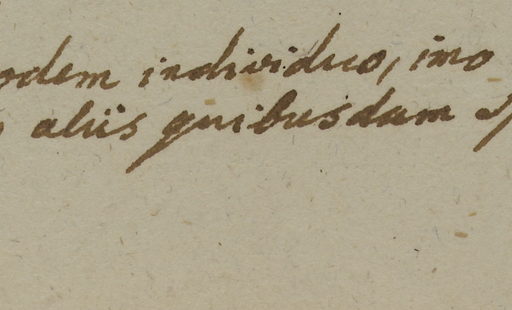 odem individuo, imo
aliis quibusdam